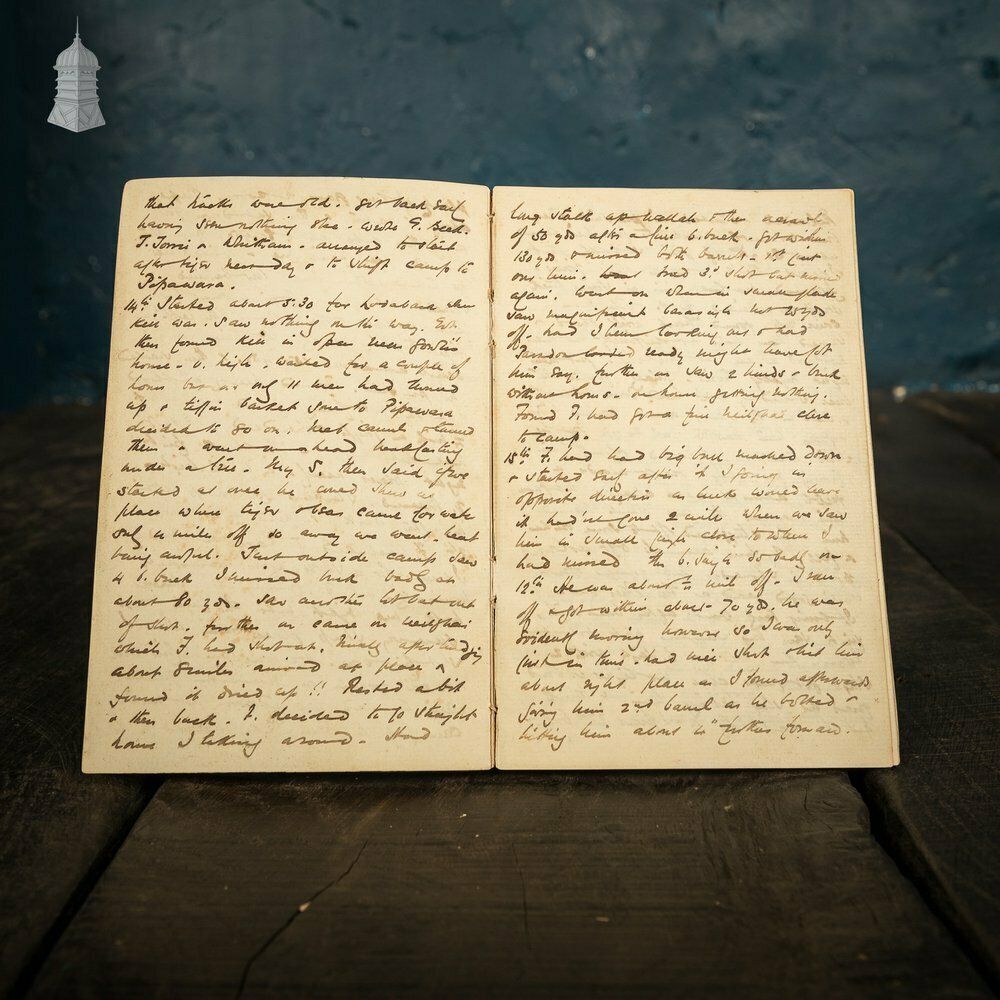 that tracks were old. Got back early
having seen nothing else - wrote G. Reed.
T. & Whitham - arranged to start
after tiger next day & to shift camp to
Pipawara.
14th Started about 5.30 for when
kill was. Saw nothing on the way. Got
there found kill in open near
house - v. high. waited for a couple of
hours but as only 11 men had turned
up & tiffin basket gone to Pipawara
decided to go on. Met camels & turned
them & went ahead breakfasting
under a tree. S. then said if we
started at once he could show us
place where tiger always came for water
only a mile off so away we went. heat
being awful. Just outside camp saw
4 b. buck I missed buck badly at
about 80 yds. Saw another lot but out
of shot. further on came on neilghai
which F. had shot at. Finally after trudging
about 8 miles arrived at place &
found it dried up!! Rested a bit
& then back. F. decided to go straight
home I taking around. Had
long stalk up nullah & then a crawl
of 50 yds after a fine b. buck. Got within
130 yds & missed both barrels. 1st just
over him. tried 3rd shot but missed
again. Went on when in same glade
saw magnificent barasingh not 100 yds
off. had I been looking out & had
loaded ready might have got
him easy. further on saw 2 hinds & buck
without horns - on home getting nothing.
Found F. had got a fine neilghai close
to camp.
15th F. had had big bull marked down
& started early after it I going in
opposite direction as luck would have
it hadn't gone 2 miles when we saw
him in small jungle close to where I
had missed the b. singh so badly on
12th He was about ½ mile off. I ran
off & got within about 70 yds. he was
evidently moving however so I was only
just in time. had nice shot & hit him
about right place as I found afterwards
giving him 2nd barrel as he bolted &
hitting him about 10" further forward.